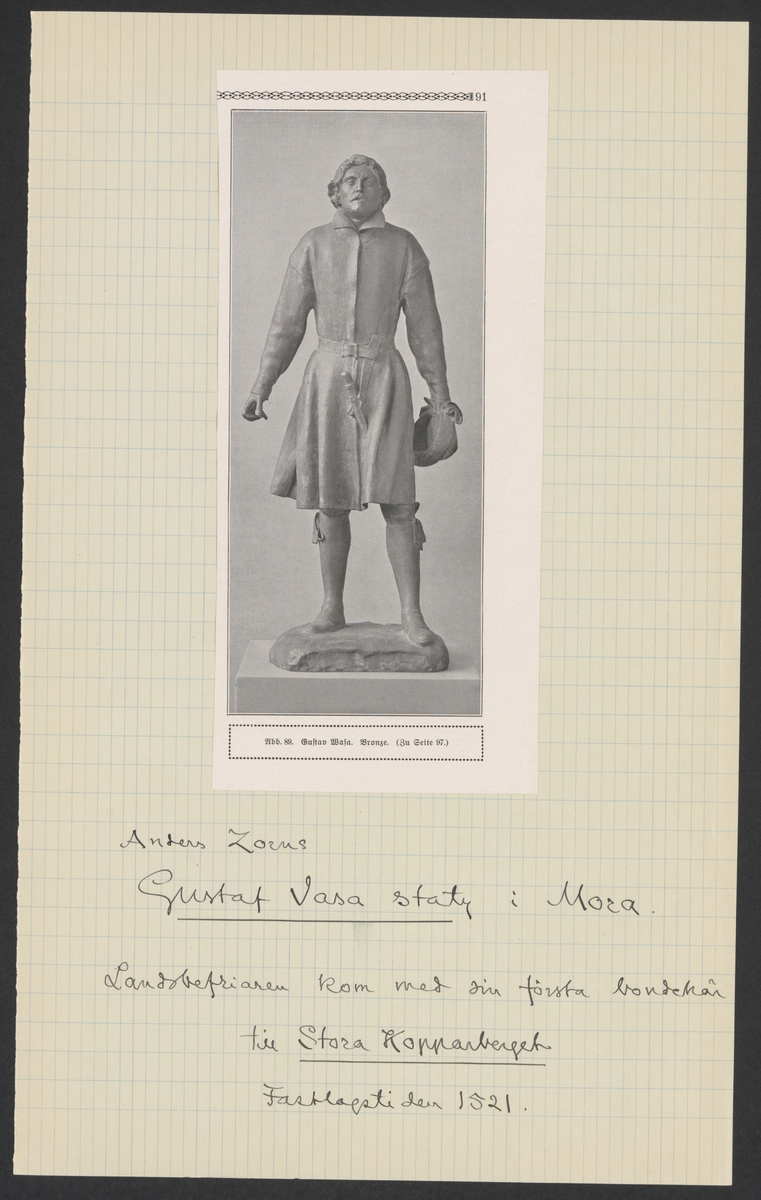 191
Abb. 89. Gustav Wasa. Bronze. (Zu Seite 97.)
Anders Zorns
Gustaf Vasa staty i Mora.
Landsbefriaren kom med sin första bondehär
till Stora Kopparberget
Fastlagstiden 1521.